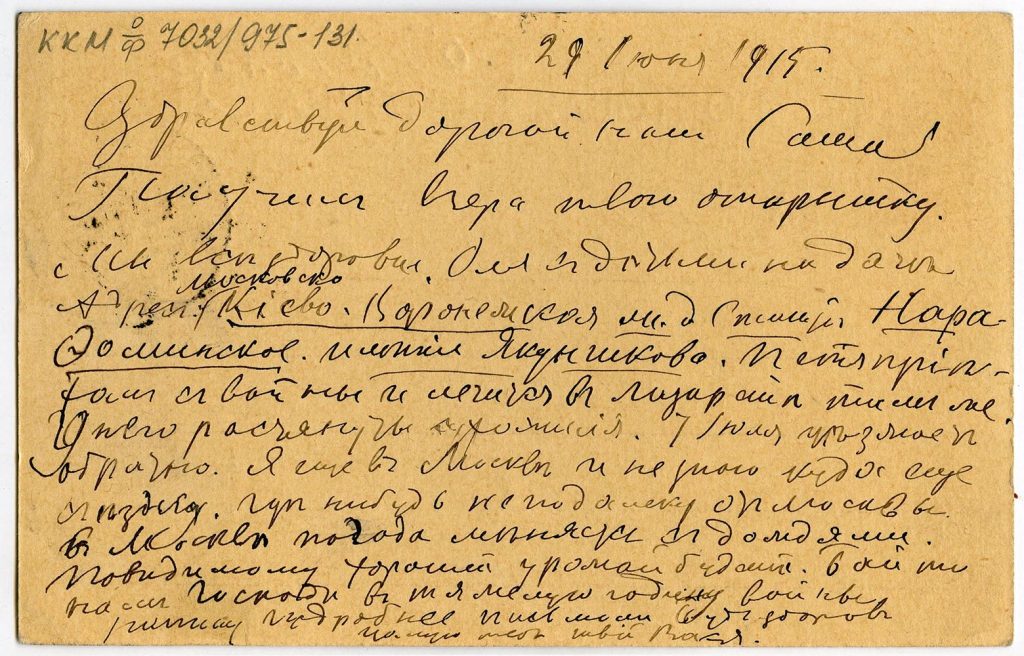 ККМ О/Ф 7032/975-131.
29 Июня 1915.
Здравствуй дорогой наш Саша
Получили вчера твою открытку.
Мы все здоровы. Оля с детьми на даче
Московско
Адрес: Кіево-Воронежская ж. д. Станція Наро-
Фоминское. имение Якунчикова. Петя пріе-
хал с войны и лечится в лазарете
У него растянуты сухожилья. 7 Июля уезжает
обратно. Я еще в Москве и не знаю куда еще
где нибудь неподалеку от Москвы.
в Москве погода меняется с дождями.
повидимому хороший урожай будет. Дай то
нам Господи в тяжелую годину войны
подробнее письмом Будь здоров
целую тебя твой Вася.